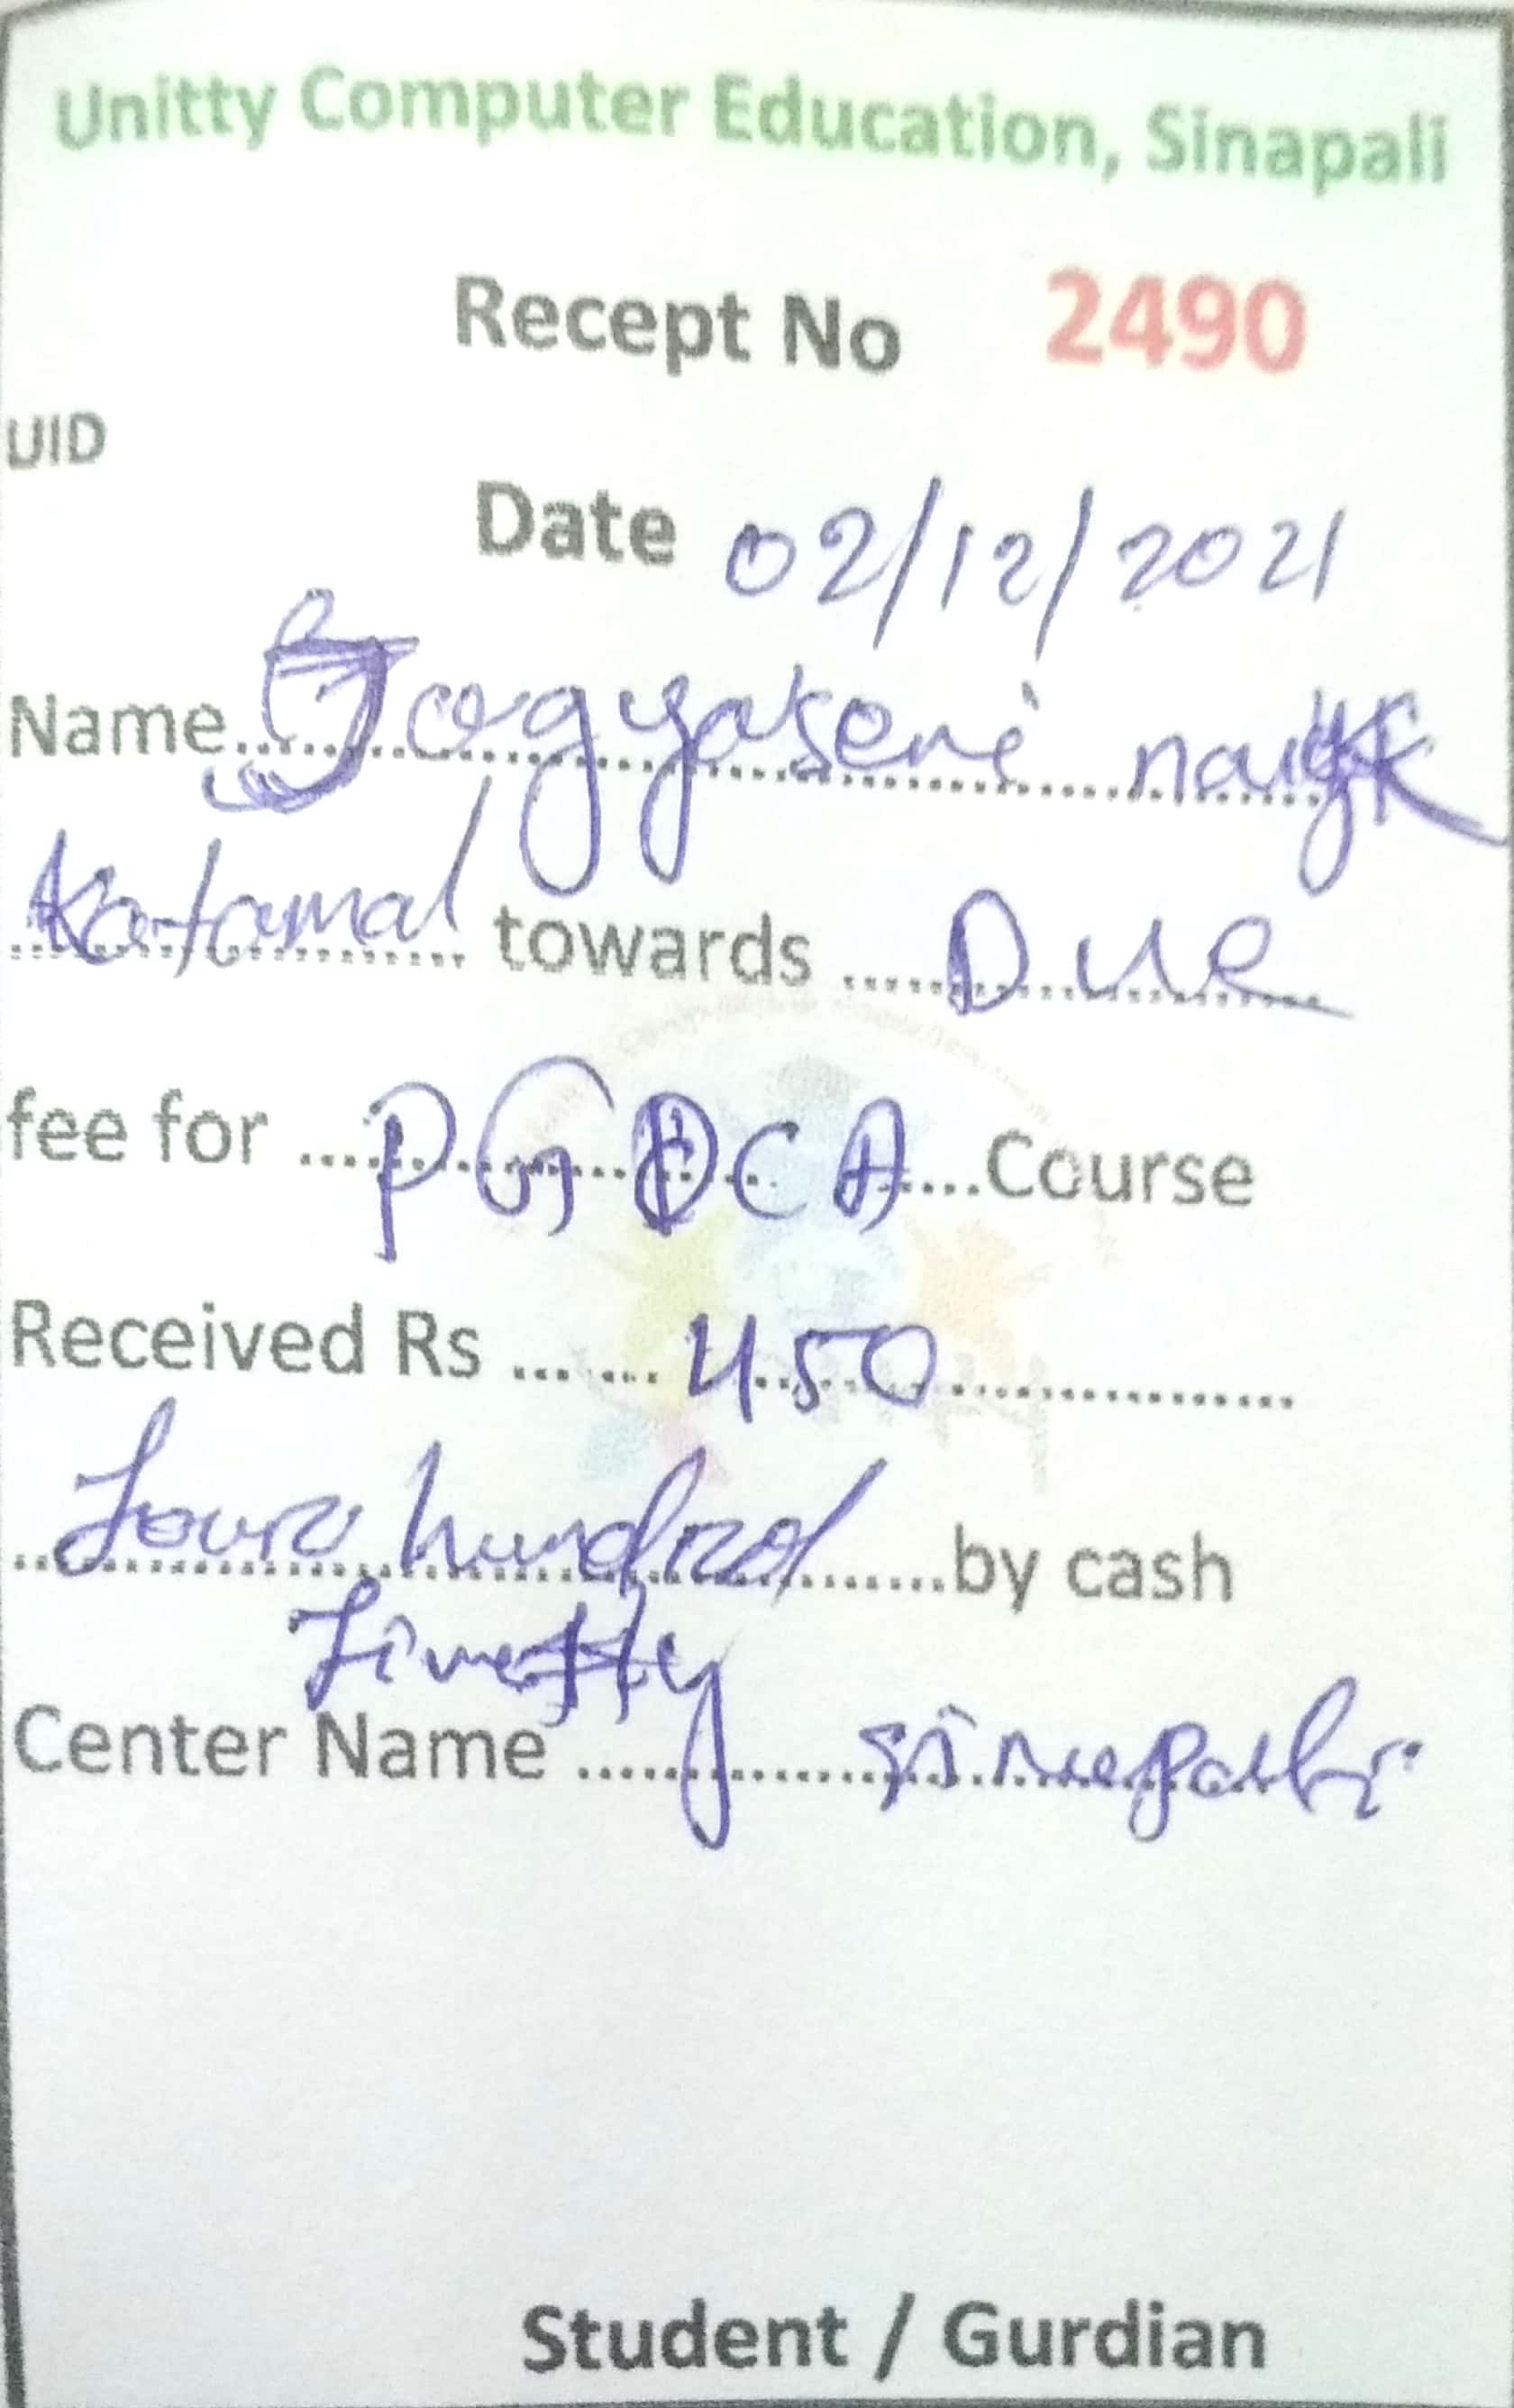 Unitty Computer Education, Sinapali
Recept No 2490
UID
Date 02/12/2021
Name Jagyaseni naik
Katamal towards Due
fee for PGDCA Course
Received Rs 450
Four hundred by cash
Center Name sinapali
Student / Gurdian